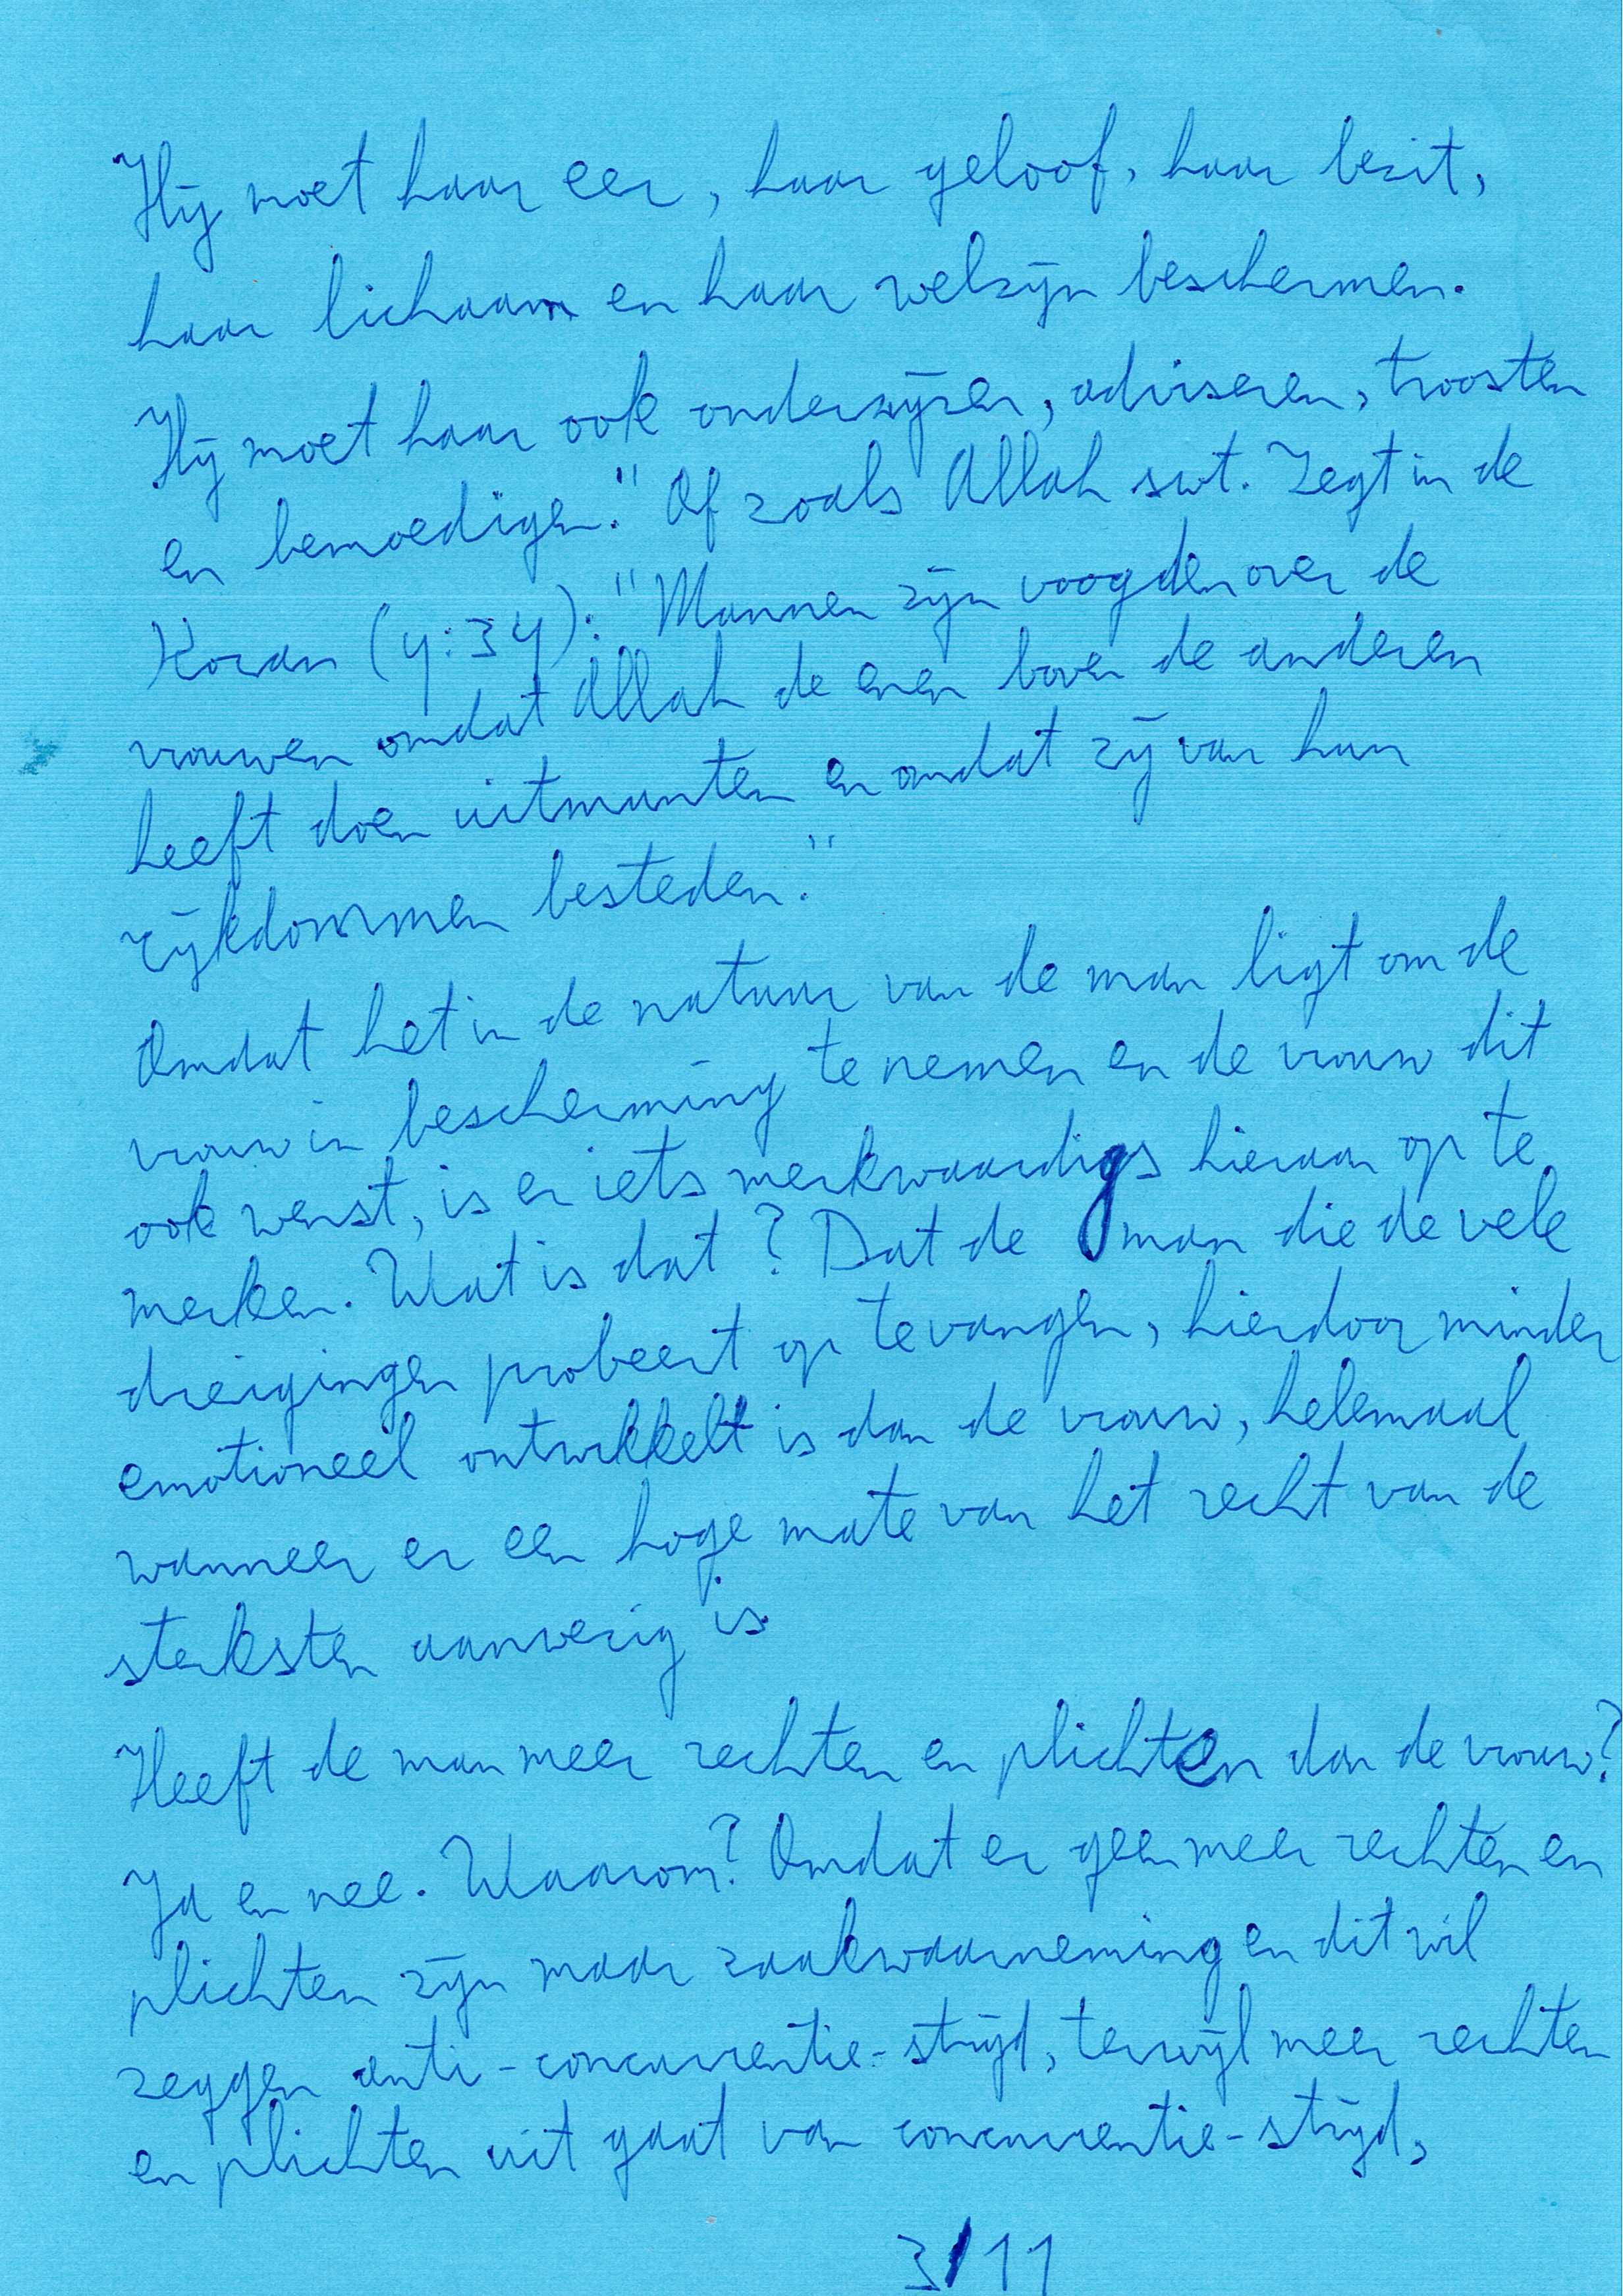 Hij moet haar eer, haar geloof, haar bezit,
haar lichaam en haar welzijn beschermen.
Hij moet haar ook onderwijzen, adviseren, troosten
en bemoedigen." Of zoals Allah swt. zegt in de
Koran (4:34): "Mannen zijn voogden over de
vrouwen omdat Allah de enen boven de anderen
heeft doen uitmunten en omdat zij van hun
rijkdommen besteden."
Omdat het in de natuur van de man ligt om de
vrouw in bescherming te nemen en de vrouw dit
ook wenst, is er iets merkwaardigs hieraan op te
merken. Wat is dat? Dat de man die de vele
dreigingen probeert op te vangen, hierdoor minder
emotioneel ontwikkelt is dan de vrouw, helemaal
wanneer er een hoge mate van het recht van de
sterksten aanwezig is
Heeft de man meer rechten en plichten dan de vrouw?
Ja en nee. Waarom? Omdat er geen meer rechten en
plichten zijn maar zaakwaarneming en dit wil
zeggen anti-concurrentie-strijd, terwijl meer rechten
en plichten uit gaat van concurrentie-strijd,
3/11